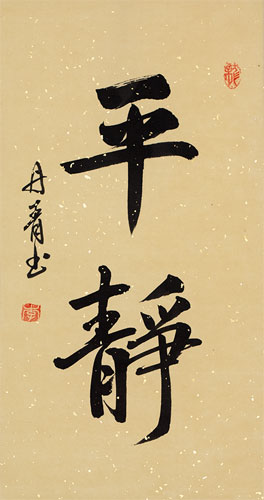 平靜
丹青书